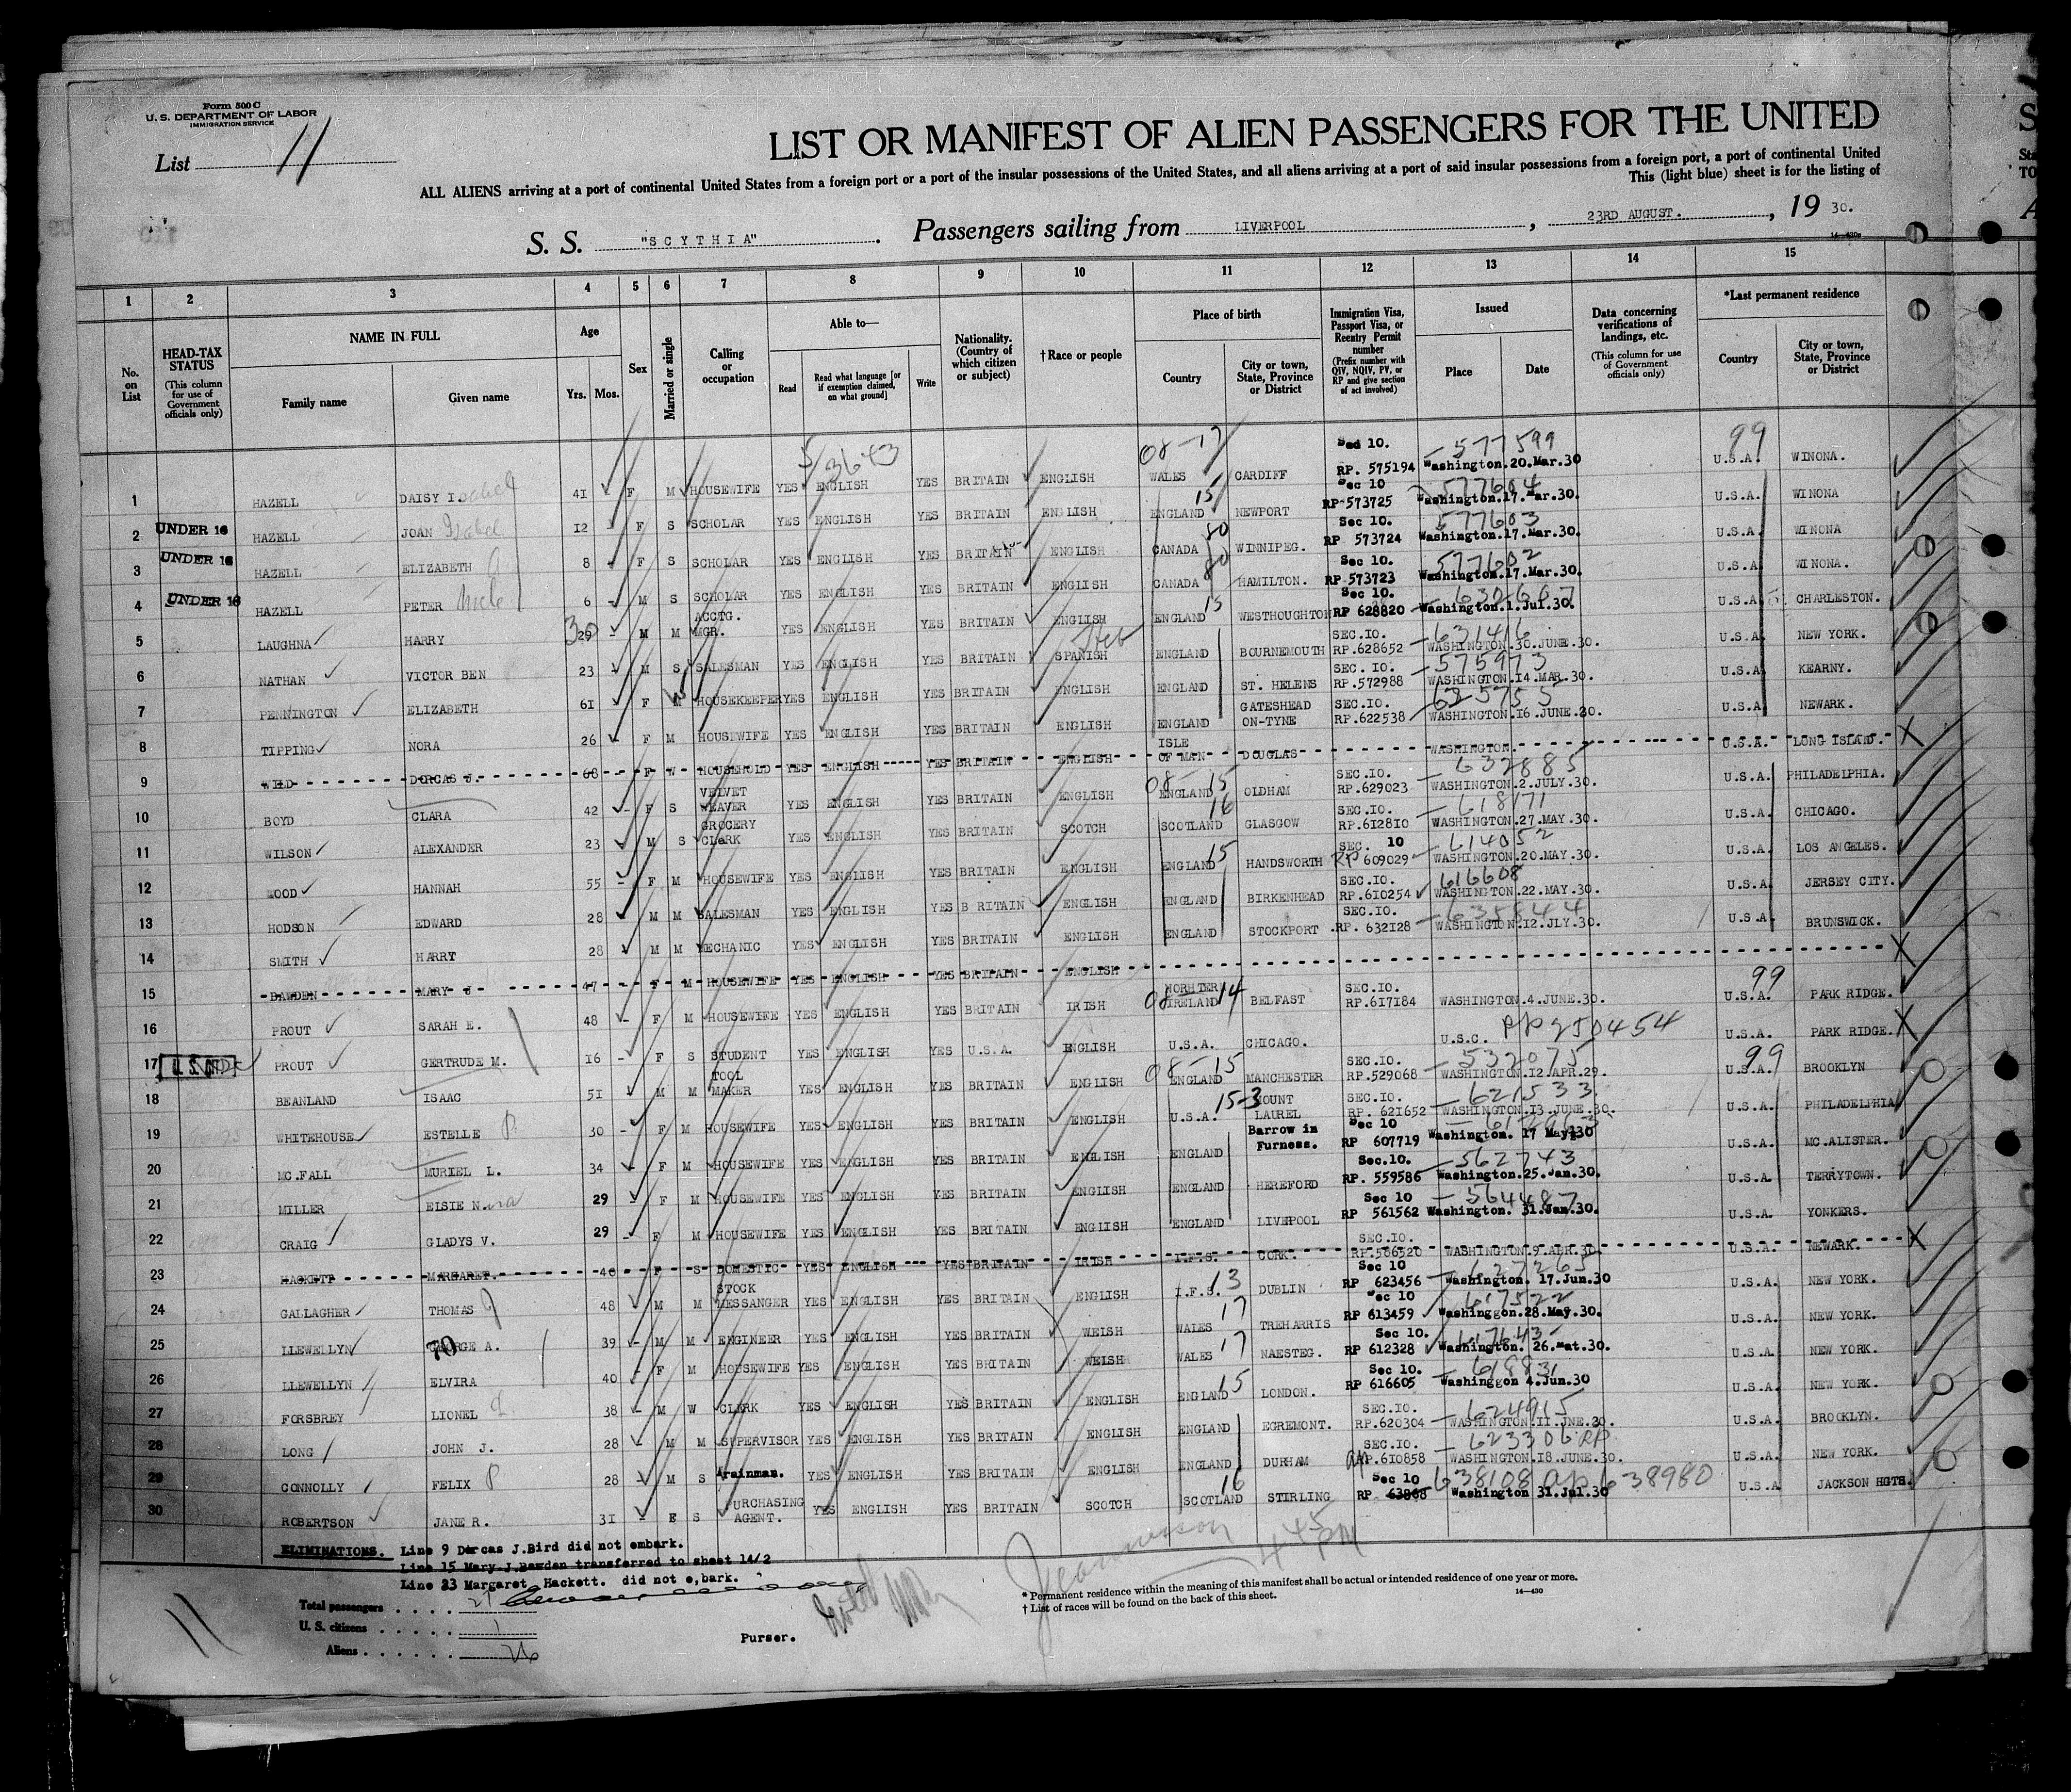 Form 500 C
U. S. DEPARTMENT OF LABOR
IMMIGRATION SERVICE
List 11
LIST OR MANIFEST OF ALIEN PASSENGERS FOR THE UNITED
ALL ALIENS arriving at a port of continental United States from a foreign port or a port of the insular possessions of the United States, and all aliens arriving at a port of said insular possessions from a foreign port, a port of continental United
This (light blue) sheet is for the listing of
S. S. "SCYTHIA". Passengers sailing from LIVERPOOL, 23RD AUGUST., 19 30.
14—430a
1 2 3 4 5 6 7 8 9 10 11 12 13 14 15
No. on List
HEAD-TAX STATUS (This column for use of Government officials only)
NAME IN FULL Family name Given name
Age Yrs. Mos.
Sex
Married or single
Calling or occupation
Able to— Read Read what language [or if exemption claimed, on what ground] Write
Nationality. (Country of which citizen or subject)
†Race or people
Place of birth Country City or town, State, Province or District
Immigration Visa, Passport Visa, or Reentry Permit number (Prefix number with QIV, NQIV, PV, or RP and give section of act involved)
Issued Place Date
Data concerning verifications of landings, etc. (This column for use of Government officials only)
*Last permanent residence Country City or town, State, Province or District
5/3643 08-17 577599 99
1 HAZELL DAISY Isabel 41 F M HOUSEWIFE YES ENGLISH YES BRITAIN ENGLISH WALES CARDIFF Sec 10. RP. 575194 Washington.20.Mar.30 U.S.A. WINONA.
2 UNDER 16 HAZELL JOAN Isabel 12 F S SCHOLAR YES ENGLISH YES BRITAIN ENGLISH ENGLAND 15 NEWPORT Sec 10 RP-573725 577604 Washington.17.Mar.30. U.S.A. WINONA
3 UNDER 16 HAZELL ELIZABETH 8 F S SCHOLAR YES ENGLISH YES BRITAIN ENGLISH CANADA 80 WINNIPEG. Sec 10. RP 573724 577603 Washington.17.Mar.30. U.S.A WINONA
4 UNDER 16 HAZELL PETER 6 M S SCHOLAR YES ENGLISH YES BRITAIN ENGLISH CANADA 80 HAMILTON. Sec 10. RP-573723 577602 Washington.17.Mar.30. U.S.A. WINONA.
5 LAUGHNA HARRY 29 30 M M ACCTG. MGR. YES ENGLISH YES BRITAIN ENGLISH ENGLAND 15 WESTHOUGHTON Sec 10. RP 628820 632607 Washington.1.Jul.30. U.S.A. CHARLESTON.
6 NATHAN VICTOR BEN 23 M S SALESMAN YES ENGLISH YES BRITAIN SPANISH Heb ENGLAND BOURNEMOUTH SEC.IO. RP.628652 631416 WASHINGTON.30.JUNE.30. U.S.A. NEW YORK.
7 PENNINGTON ELIZABETH 61 F M W HOUSEKEEPER YES ENGLISH YES BRITAIN ENGLISH ENGLAND ST. HELENS SEC. IO. RP.572988 575973 WASHINGTON.14.MAR.30. U.S.A KEARNY.
8 TIPPING NORA 26 F M HOUSEWIFE YES ENGLISH YES BRITAIN ENGLISH ENGLAND GATESHEAD ON-TYNE SEC.IO. RP.622538 625755 WASHINGTON.16.JUNE.30. U.S.A. NEWARK.
9 WILD DORCAS J. 68 F W HOUSEHOLD YES ENGLISH YES BRITAIN ENGLISH ISLE OF MAN DOUGLAS WASHINGTON. U.S.A. LONG ISLAND. X
10 BOYD CLARA 42 F S VELVET WEAVER YES ENGLISH YES BRITAIN ENGLISH 08-15 ENGLAND OLDHAM SEC.IO. RP.629023 632885 WASHINGTON.2.JULY.30. U.S.A. PHILADELPHIA.
11 WILSON ALEXANDER 23 M S GROCERY CLERK YES ENGLISH YES BRITAIN SCOTCH SCOTLAND 16 GLASGOW SEC.IO. RP.612810 618171 WASHINGTON.27.MAY.30. U.S.A. CHICAGO.
12 WOOD HANNAH 55 F M HOUSEWIFE YES ENGLISH YES BRITAIN ENGLISH ENGLAND 15 HANDSWORTH SEC. 10 RP 609029 614052 WASHINGTON.20.MAY.30. U.S.A. LOS ANGELES.
13 HODSON EDWARD 28 M M SALESMAN YES ENGLISH YES BRITAIN ENGLISH ENGLAND BIRKENHEAD SEC.IO. RP.610254 616608 WASHINGTON.22.MAY.30. U.S.A. JERSEY CITY.
14 SMITH HARRY 28 M M MECHANIC YES ENGLISH YES BRITAIN ENGLISH ENGLAND STOCKPORT SEC.IO. RP. 632128 635844 WASHINGTON.12.JLY.30. U.S.A. BRUNSWICK.
15 BAWDEN MARY J 47 F M HOUSEWIFE YES ENGLISH YES BRITAIN ENGLISH X
16 PROUT SARAH E. 48 F M HOUSEWIFE YES ENGLISH YES BRITAIN IRISH 08 14 NORHTER IRELAND BELFAST SEC.IO. RP.617184 WASHINGTON.4.JUNE.30. 99 U.S.A. PARK RIDGE.
17 PROUT GERTRUDE M. 16 F S STUDENT YES ENGLISH YES U.S.A. ENGLISH U.S.A. CHICAGO. U.S.C. PP 250454 U.S.A. PARK RIDGE. X
18 BEANLAND ISAAC 51 M M TOOL MAKER YES ENGLISH YES BRITAIN ENGLISH 08-15 ENGLAND MANCHESTER SEC.IO. RP.529068 532075 WASHINGTON.12.APR.29. 99 U.S.A. BROOKLYN
19 WHITEHOUSE ESTELLE P. 30 F M HOUSEWIFE YES ENGLISH YES BRITAIN ENGLISH U.S.A. 15-3 MOUNT LAUREL SEC.IO. RP. 621652 621533 WASHINGTON.13.JUNE.30. U.S.A. PHILADELPHIA
20 MC.FALL MURIEL L. 34 F M HOUSEWIFE YES ENGLISH YES BRITAIN ENGLISH ENGLAND Barrow in Furness. Sec 10 RP 607719 Washington. 17 May 30 U.S.A. MC.ALISTER.
21 MILLER ELSIE Nora 29 F M HOUSEWIFE YES ENGLISH YES BRITAIN ENGLISH ENGLAND HEREFORD Sec.10. RP. 559586 562743 Washington.25.Jan.30. U.S.A. TERRYTOWN.
22 CRAIG GLADYS V. 29 F M HOUSEWIFE YES ENGLISH YES BRITAIN ENGLISH ENGLAND LIVERPOOL Sec 10 RP 561562 564487 Washington. 31.Jan.30. U.S.A. YONKERS.
23 HACKETT MARGARET. 40 F S DOMESTIC YES ENGLISH YES BRITAIN IRISH I.F.S. CORK. SEC.IO. RP.586520 WASHINGTON.9.APR.30. U.S.A. NEWARK. X
24 GALLAGHER THOMAS J 48 M M STOCK MESSANGER YES ENGLISH YES BRITAIN ENGLISH I.F.S. 13 DUBLIN Sec 10 RP 623456 627265 Washington. 17.Jun.30 U.S.A. NEW YORK.
25 LLEWELLYN GEORGE A. 70 39 M M ENGINEER YES ENGLISH YES BRITAIN WELSH WALES 17 TREHARRIS Sec 10 RP 613459 617522 Washinggon.28.May.30. U.S.A. NEW YORK.
26 LLEWELLYN ELVIRA 40 F M HOUSEWIFE YES ENGLISH YES BRITAIN WELSH WALES 17 NAESTEG. Sec 10. RP 612328 617643 Washington. 26.Mat.30. U.S.A. NEW YORK.
27 FORSBREY LIONEL 38 M W CLERK YES ENGLISH YES BRITAIN ENGLISH ENGLAND 15 LONDON. Sec 10. RP 616605 618831 Washinggon 4.Jun.30 U.S.A. NEW YORK.
28 LONG JOHN J. 28 M M SUPERVISOR YES ENGLISH YES BRITAIN ENGLISH ENGLAND EGREMONT. SEC.IO. RP.620304 624915 WASHINGTON.11.JNE.30. U.S.A. BROOKLYN.
29 CONNOLLY FELIX P 28 M S Trainman. YES ENGLISH YES BRITAIN ENGLISH ENGLAND DURHAM SEC.IO. RP.610858 623306 RP WASHINGTON.18.JUNE.30. U.S.A. NEW YORK.
30 ROBERTSON JANE R. 31 F S PURCHASING AGENT. YES ENGLISH YES BRITAIN SCOTCH SCOTLAND 16 STIRLING Sec 10 RP 63868 638108 ap 638980 Washington 31.Jul.30 U.S.A JACKSON HGTS.
ELIMINATIONS. Line 9 Dorcas J.Bird did not embark.
Line 15 Mary J.Bawden transferred to sheet 14/2
Line 23 Margaret Hackett. did not e,bark.
Total passengers 27
U. S. citizens 1
Aliens 26
Purser.
445 PM
* Permanent residence within the meaning of this manifest shall be actual or intended residence of one year or more.
† List of races will be found on the back of this sheet.
14—430
11